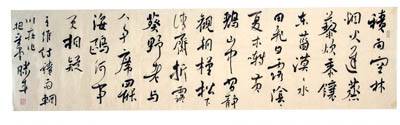 積雨空林
烟火遲蒸
藜炊黍餉
東菑漠漠水
田飛白鷺陰陰
夏木囀黄
鸝山中習靜
觀朝槿松下
清齋折露
葵野老与
人争席罷
海鷗何事
更相疑
王維詩積雨輞
川莊作